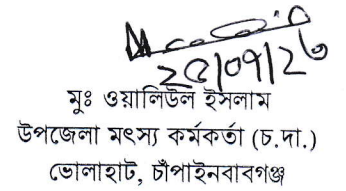 ২৫/০৭/২৩
মুঃ ওয়ালিউল ইসলাম
উপজেলা মৎস্য কর্মকর্তা (চ.দা.)
ভোলাহাট, চাঁপাইনবাবগঞ্জ